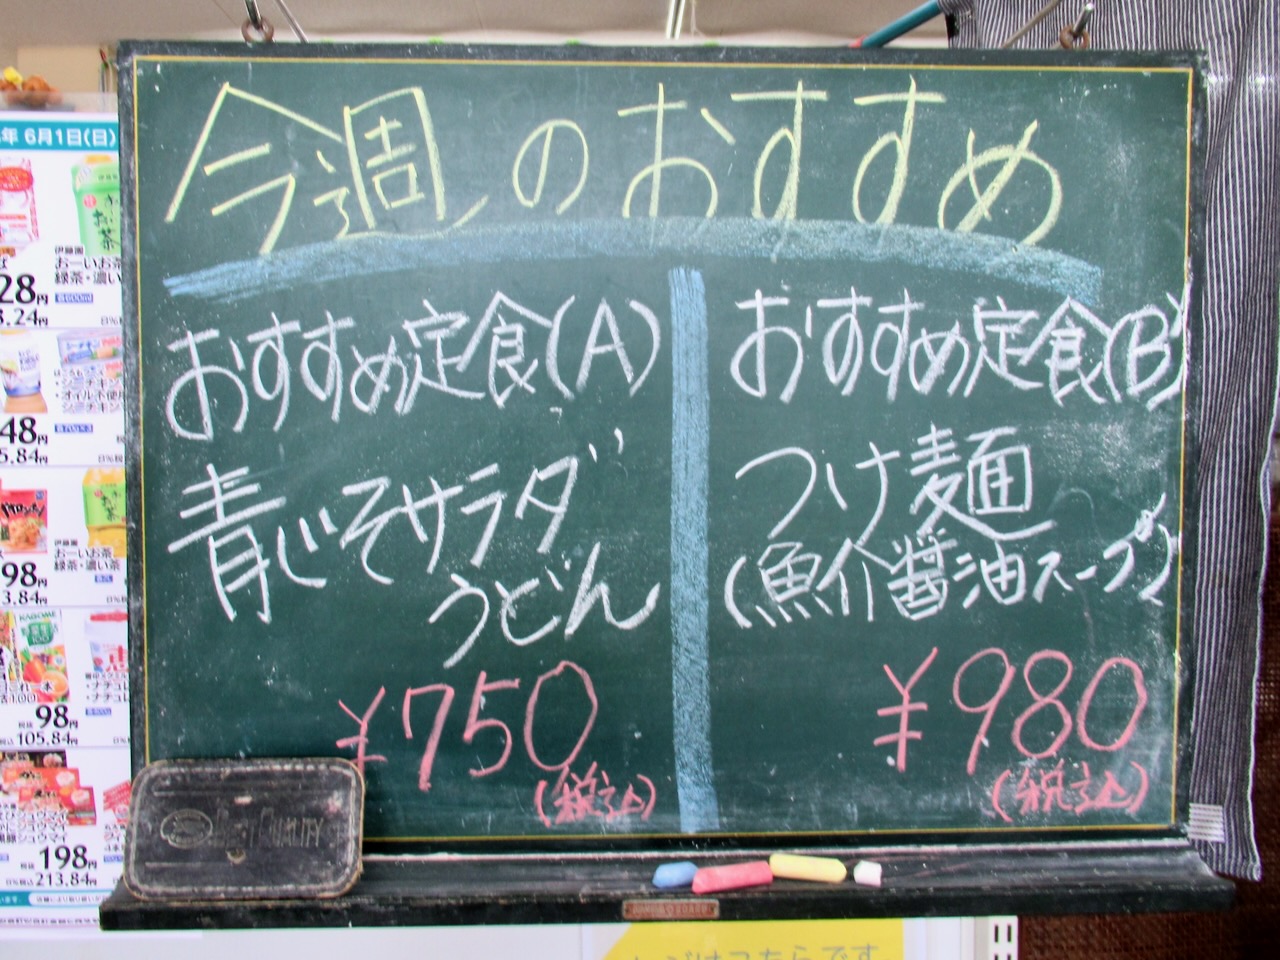 今週のおすすめ
おすすめ定食(A)
青じそサラダ
うどん
¥750
(税込)
おすすめ定食(B)
つけ麺
(魚介醤油スープ)
¥980
(税込)
QUALITY
年 6月1日(日)
28円
3.24円
伊藤園
おーいお茶
緑茶・濃い
各600ml
48円
5.84円
98円
3.84円
伊藤園
おーいお茶
緑茶・濃い茶
KAGOME
98円
税込105.84円
198円
213.84円